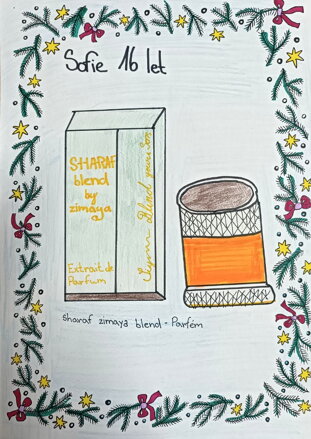 Sofie 16 let
SHARAF
blend
by
zimaya
Extrait de
Parfum
Sharaf zimaya blend - Parfém